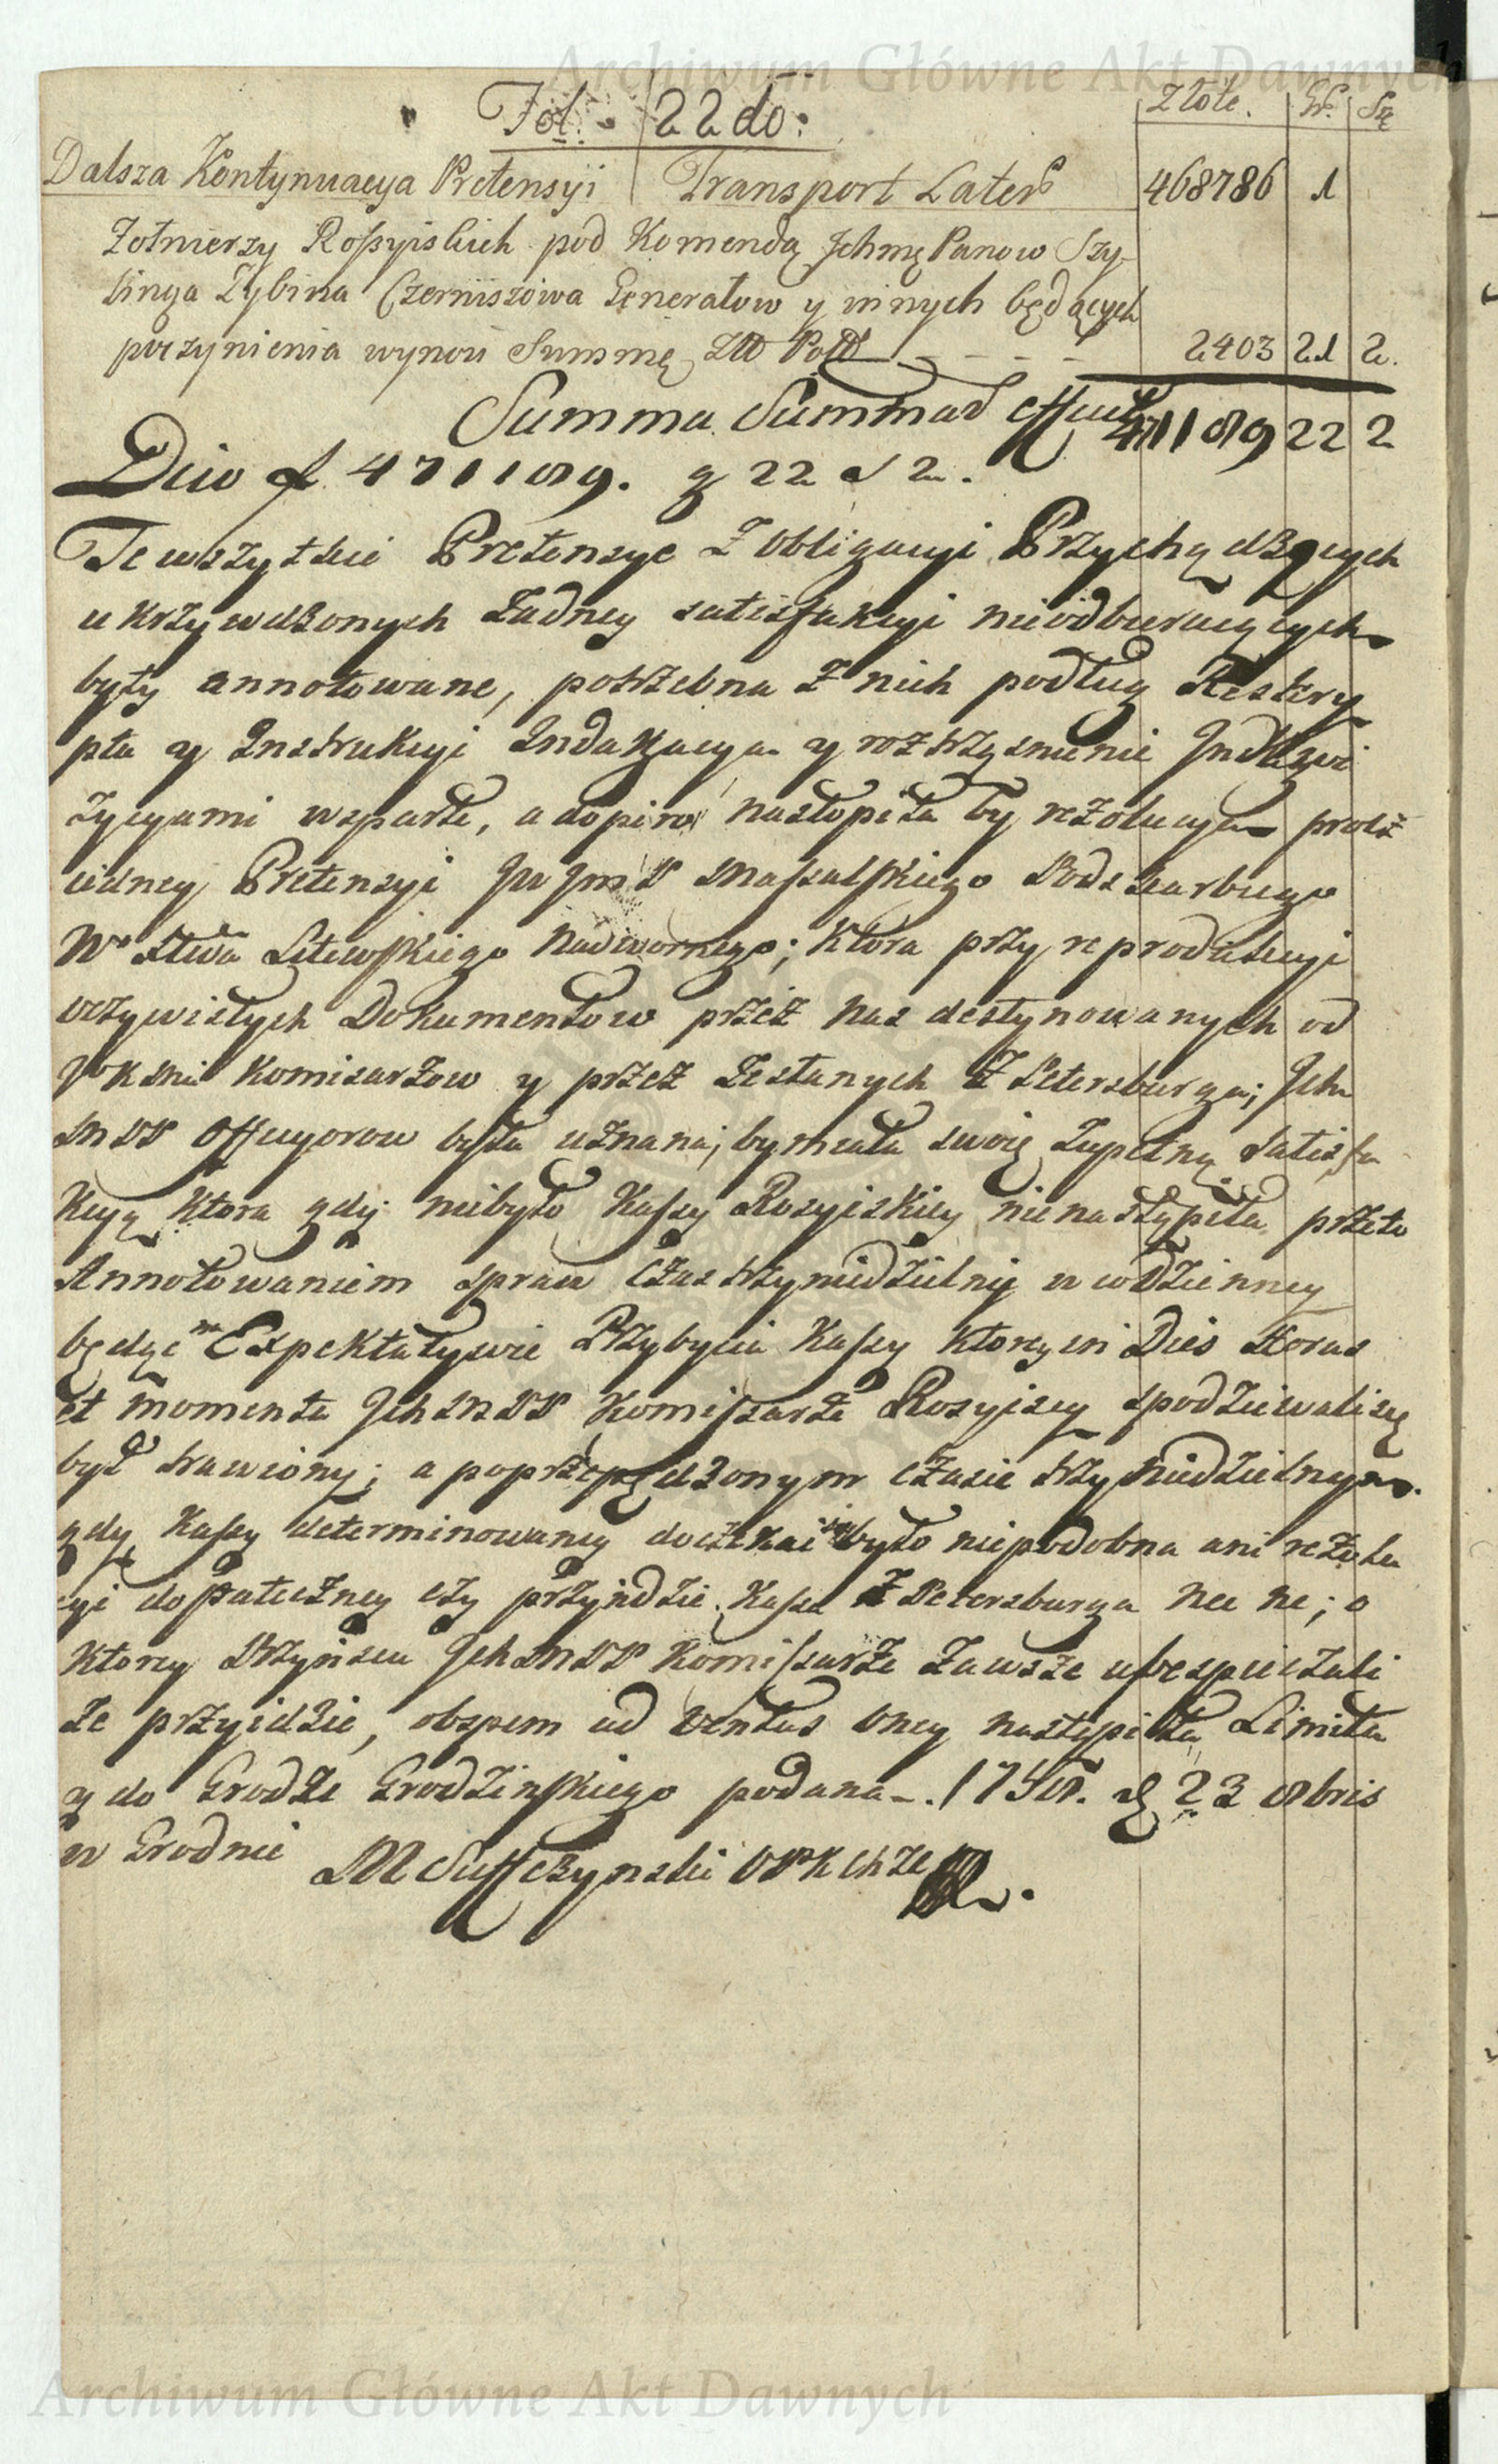 Archiwum Główne Akt Dawnych
Fol. 22do:
Złote. Gr. Szę
Dalsza Kontynuacya Pretensyi Transport Lateris 468786 1
Zołnierzy Rossyiskich pod Komendą Jchmę Panow Szy-
linga Zybina Czerniszowa Generałow y innych będących
poczynienia wynosi Summę Złł Poll 2403 21 2.
Summa Summar efficit 471189 22 2
Dico f 471189. g 22 s 2.
Te wszytkie Pretensye z obligacyi Przychądzących
ukrzywdzonych żadney satisfakcyi nieodbieraiących
były annotowane, potrzebna z nich podług Reskry
ptu y Instrukcyi Indagacya y roztrząsnienie Inkwi
zycyami wsparte, a dopiro nastąpiła by rezolucya procz
iedney Pretensyi Jw Jm P Massalskiego Podskarbiego
Wo Xtwa Litewskiego Nadwornego; ktora przy reprodukcyi
oczywistych Dokumentow przez nas destynowanych od
JoKMci Komisarzow y przez zesłanych z Petersburga; Jch
MPP Officyerow była uznana; by miała swoię zupełną satisfa
kcyą ktora gdy niebyło Kassy Rosyiskiey nienastąpiła, przeto
Annotowaniem spraw czas trzyniedzielny w codzienney
będąc Expektatywie Przybycia Kassy ktorey in Dies Horas
et momenta Jch MPP Komissarze Rosyiscy spodziewali się
był trawiony; a poprzepędzonym czasie trzyniedzielnym.
gdy Kassy determinowaney doczekać się było niepodobna ani rezolu
cyi dostateczney czy przyidzie Kassa z Petersburga nec ne; o
ktorey Przyisciu Jch MPP Komissarze zawsze ubespieczali
że przyidzie, ob spem ad ventus oney nastąpiła Limita
y do Grodu Grodzinskiego podana. 1758. d 23 8bris
w Grodnie M Suffczynski
Archiwum Główne Akt Dawnych